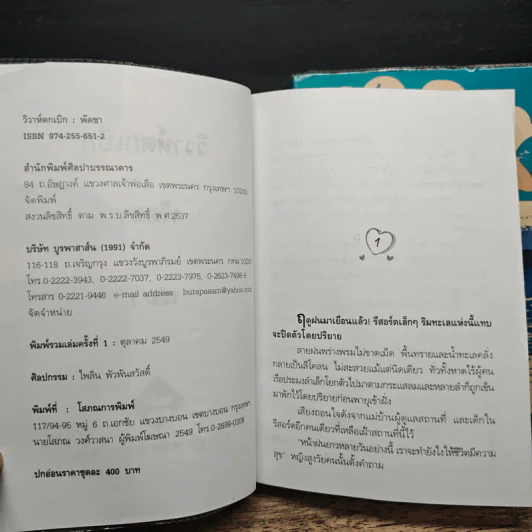 วิวาห์ตกเบิก : พัดชา
ISBN 974-255-651-2
สำนักพิมพ์ศิลปาบรรณาคาร
84 ถ.อัษฎางค์ แขวงศาลเจ้าพ่อเสือ เขตพระนคร กรุงเทพฯ 10200
จัดพิมพ์
สงวนลิขสิทธิ์ ตาม พ.ร.บ.ลิขสิทธิ์ พ.ศ.2537
บริษัท บูรพาสาส์น (1991) จำกัด
116-118 ถ.เจริญกรุง แขวงวังบูรพาภิรมย์ เขตพระนคร กทม.10200
โทร.0-2222-3943, 0-2222-7037, 0-2223-7975, 0-2623-7498-9
โทรสาร 0-2221-9446 e-mail address : burapasarn@yahoo.com
จัดจำหน่าย
พิมพ์รวมเล่มครั้งที่ 1 : ตุลาคม 2549
ศิลปกรรม : ไพลิน พัวพันสวัสดิ์
พิมพ์ที่ : โสภณการพิมพ์
117/94-95 หมู่ 6 ถ.เอกชัย แขวงบางบอน เขตบางบอน กรุงเทพฯ
นายโสภณ วงศ์วาสนา ผู้พิมพ์โฆษณา 2549 โทร.0-2899-0308
ปกอ่อนราคาชุดละ 400 บาท
1
ฤดูฝนมาเยือนแล้ว! รีสอร์ตเล็กๆ ริมทะเลแห่งนี้แทบ
จะปิดตัวโดยปริยาย
สายฝนพร่างพรมไม่ขาดเม็ด พื้นทรายและน้ำทะเลคลั่ง
กลายเป็นสีโคลน ไม่สะสวยแม้แต่นิดเดียว ทัวทั้งหาดไร้ผู้คน
เรือประมงลำเล็กโยกตัวไปมาตามกระแสลมและหลายลำก็ถูกเข็น
มาพักไว้โดยปริยายก่อนพายุเข้าฝั่ง
เสียงถอนใจดังจากแม่บ้านผู้ดูแลสถานที่ และเด็กใน
รีสอร์ตอีกคนเดียวที่เหลือเฝ้าสถานที่นี้ไว้
"หน้าฝนยาวหลายวันอย่างนี้ เราจะทำยังไงให้ชีวิตมีความ
สุข" หญิงสูงวัยคนนั้นตั้งคำถาม